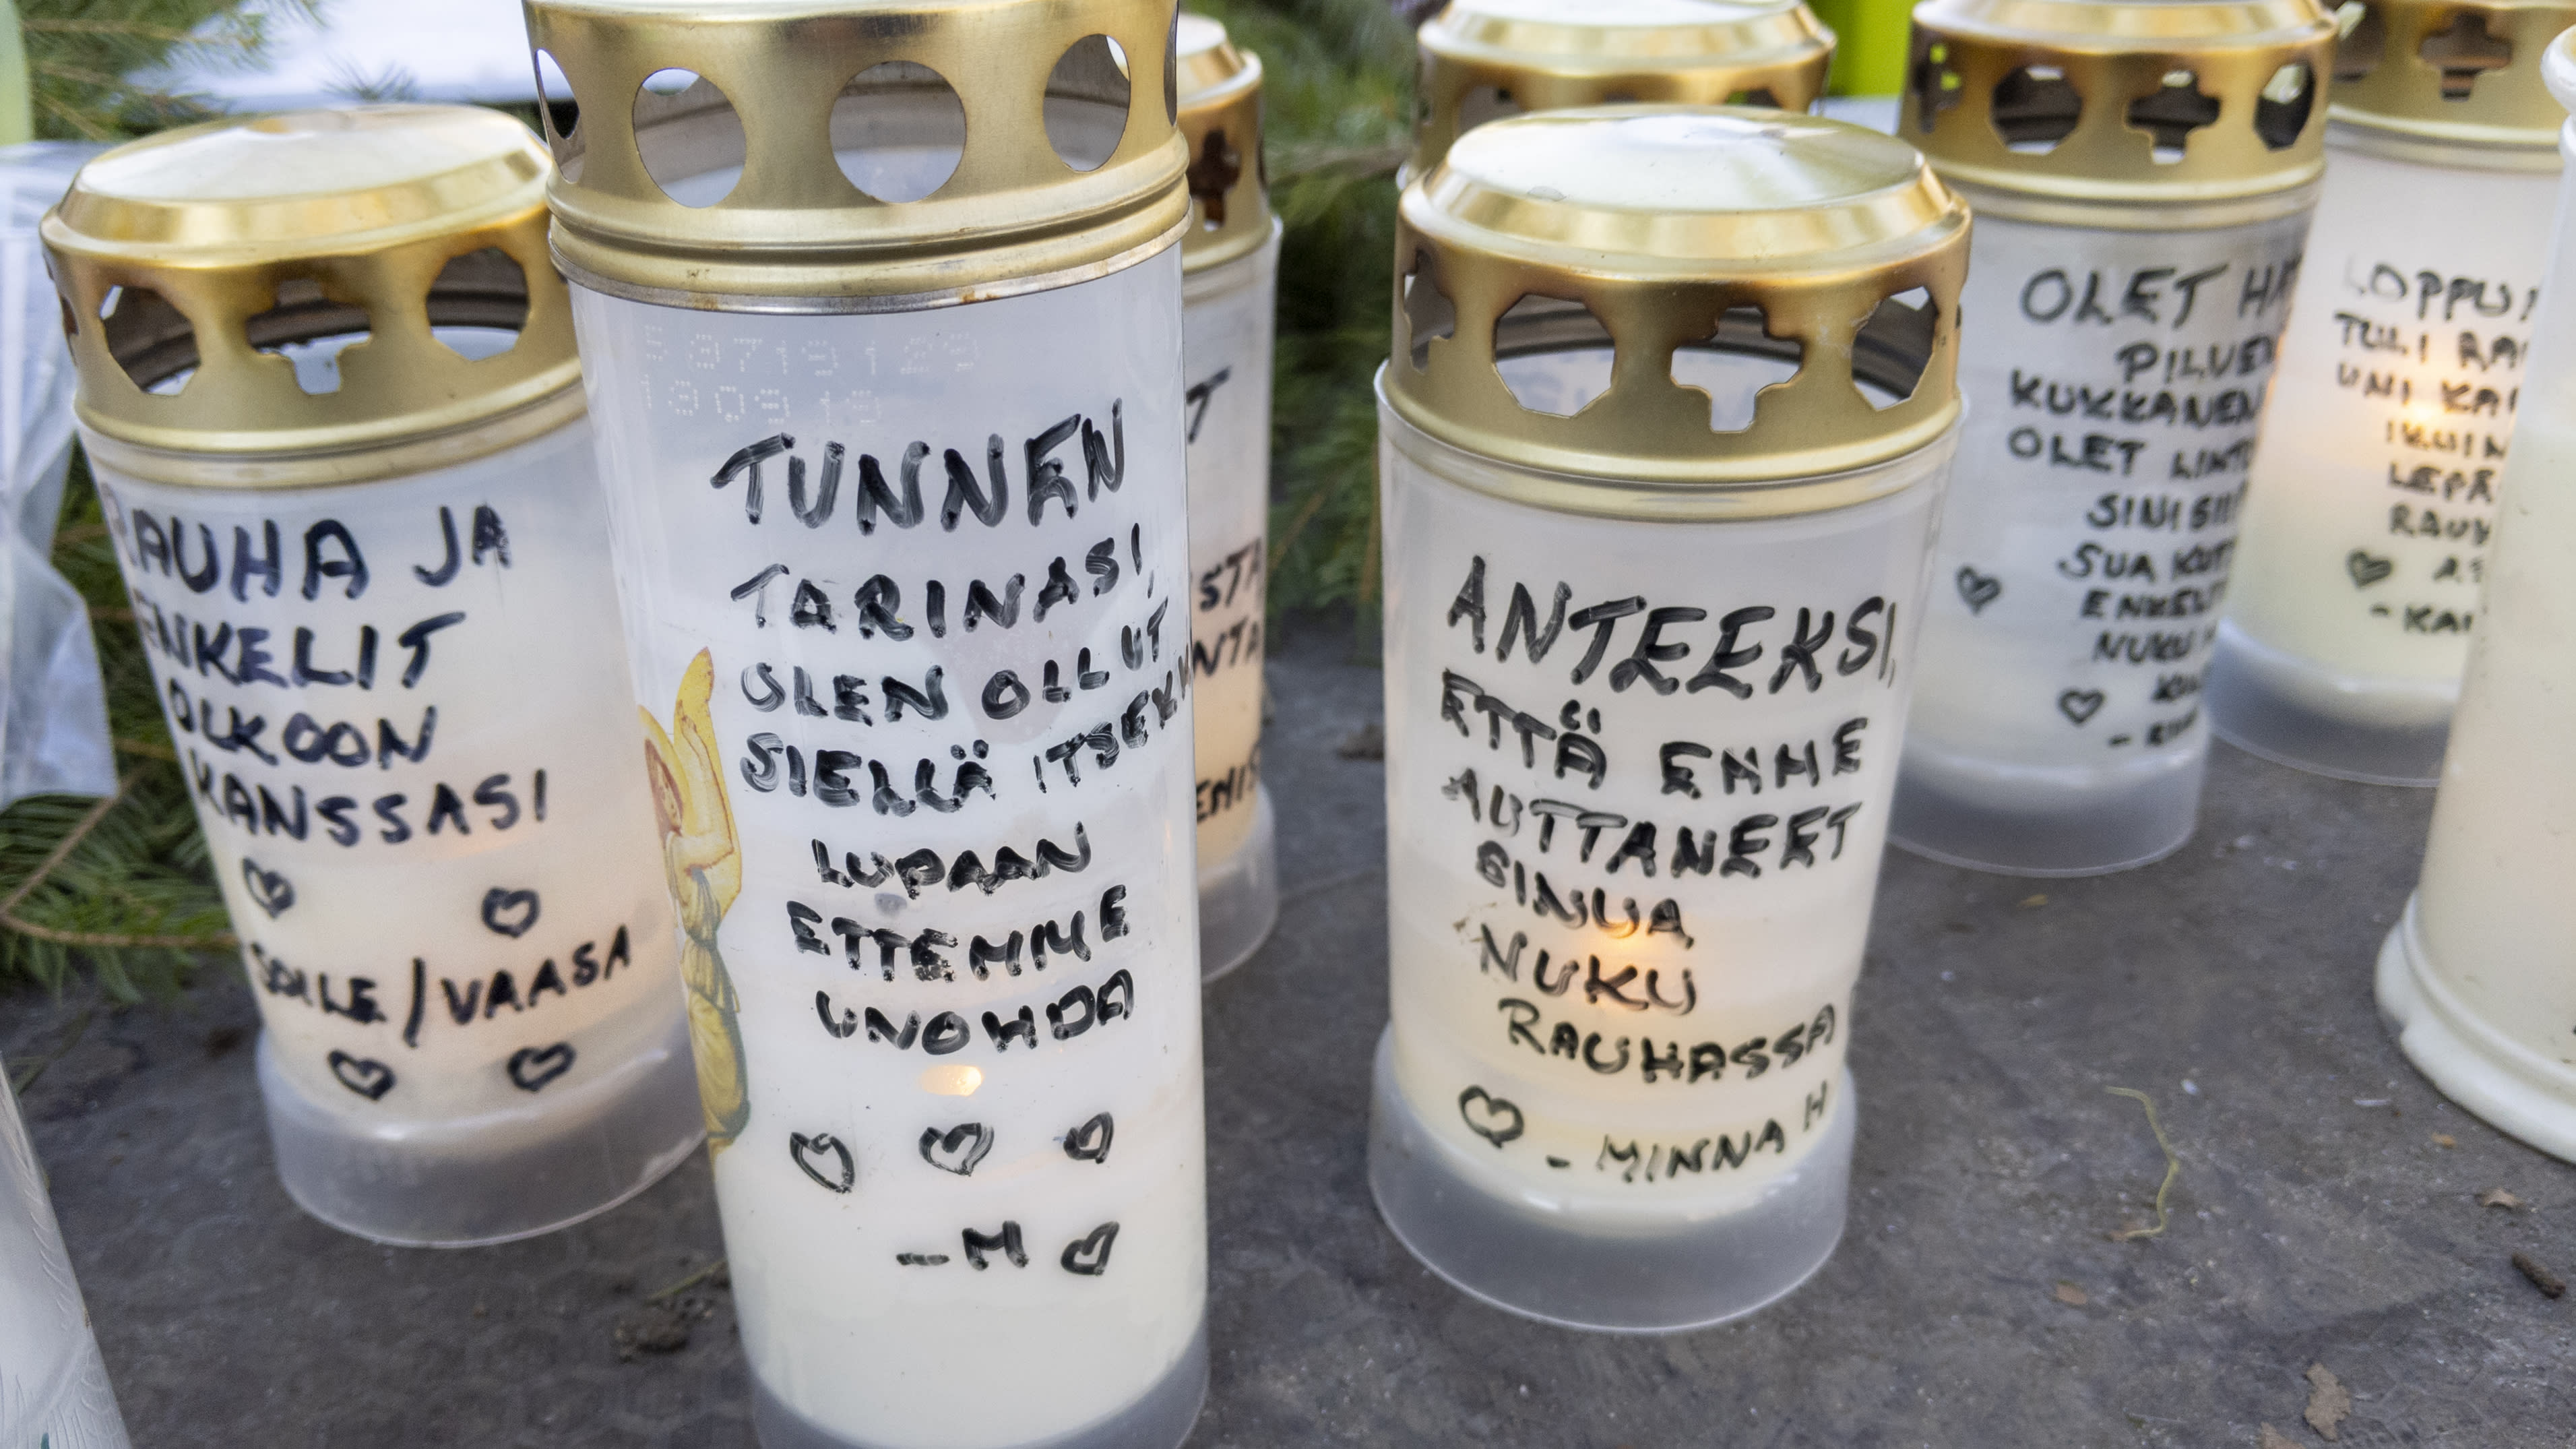 RAUHA JA
ENKELIT
OLKOON
KANSSASI
/VAASA
TUNNEN
TARINASI,
OLEN OLLUT
SIELLÄ ITSEKK
LUPAAN
ETTEMME
UNOHDA
-M
T
ISTA
NTA
ENIS
ANTEEKSI,
ETTÄ EMME
AUTTANEET
SINUA
NUKU
RAUHASSA
- MINNA H
OLET HA
PILVEN
KUKKANEN
OLET LINTU
SINISII
SUA KUT
ENKELI
NUKU
LOPPU
TULI RA
UNI KA
IKUIN
LEPÄ
RAUH
- KAI